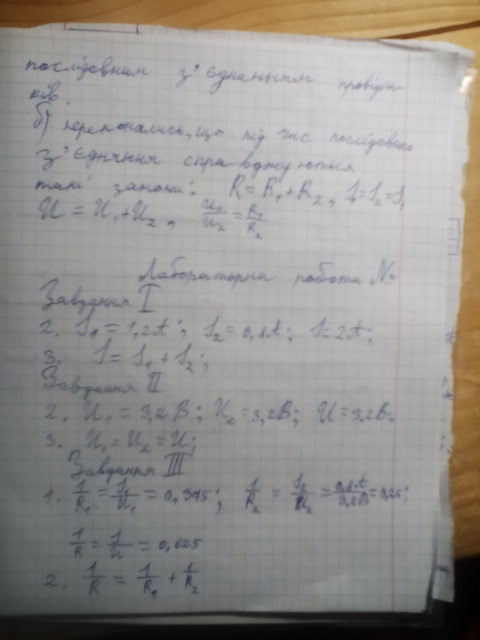 послідовним з'єднанням провідни-
ків.
б) переконались, що під час послідовного
з'єднання справджуються
такі закони: R = R₁ + R₂, I₁ = I₂ = I,
U = U₁ + U₂, U₁/U₂ = R₁/R₂
Лабораторна робота №
Завдання I
2. I₁ = 1,2A; I₂ = 0,8A; I = 2A;
3. I = I₁ + I₂;
Завдання II
2. U₁ = 3,2В; U₂ = 3,2В; U = 3,2В.
3. U₁ = U₂ = U;
Завдання III
1. 1/R₁ = I₁/U₁ = 0,375; 1/R₂ = I₂/U₂ = 0,8A/3,2В = 0,25;
1/R = I/U = 0,625
2. 1/R = 1/R₁ + 1/R₂